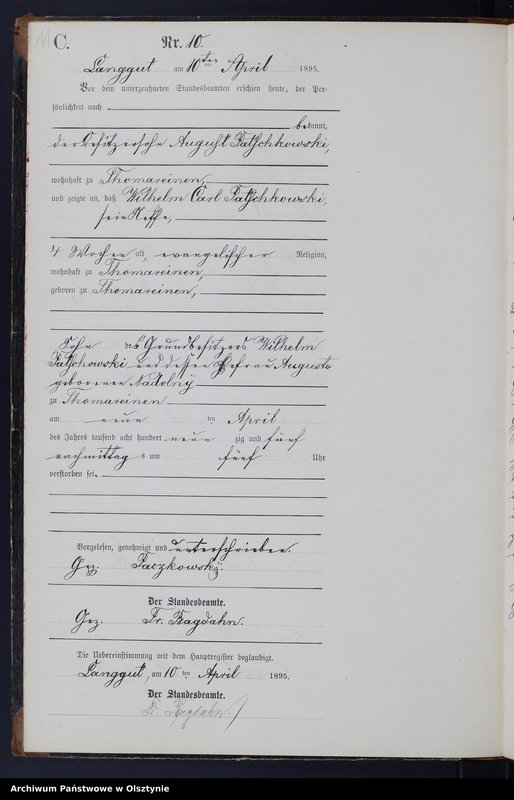 C.
Nr. 10.
Langgut am 10ten April 1895.
Vor dem unterzeichneten Standesbeamten erschien heute, der Per-
sönlichkeit nach
bekannt,
der Besitzersohn August Patschkowski,
wohnhaft zu Thomareinen,
und zeigte an, daß Wilhelm Carl Patschkowski,
sein Neffe,
4 Wochen alt, evangelischer Religion,
wohnhaft zu Thomareinen,
geboren zu Thomareinen,
Sohn des Grundbesitzers Wilhelm
Patschkowski und dessen Ehefrau Auguste
geborenen Nadolny
zu Thomareinen
am neun ten April
des Jahres tausend acht hundert neun zig und fünf
nachmittag s um fünf Uhr
verstorben sei.
Vorgelesen, genehmigt und unterschrieben.
Gez. Paczkowsky.
Der Standesbeamte.
Gez. Fr. Bagdahn.
Die Uebereinstimmung mit dem Hauptregister beglaubigt.
Langgut, am 10 ten April 1895.
Der Standesbeamte.
Fr. Bagdahn.
Archiwum Państwowe w Olsztynie